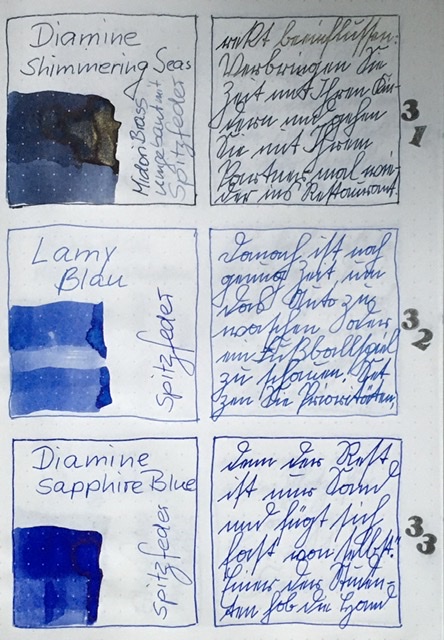 Diamine
Shimmering Seas
Midori Brass
umgebaut mit
Spitzfeder
rekt beeinflussen.
Verbringen Sie
Zeit mit Ihren Kin-
dern und gehen
Sie mit Ihrem
Partner mal wie-
der ins Restaurant.
31
Lamy
Blau
Spitzfeder
Danach ist noch
genug Zeit, um
das Auto zu
waschen oder
ein Fußballspiel
zu schauen. Set-
zen Sie Prioritäten,
32
Diamine
Sapphire Blue
Spitzfeder
denn der Rest
ist nur Sand
und fügt sich
fast von selbst."
Einer der Studen-
ten hob die Hand
33